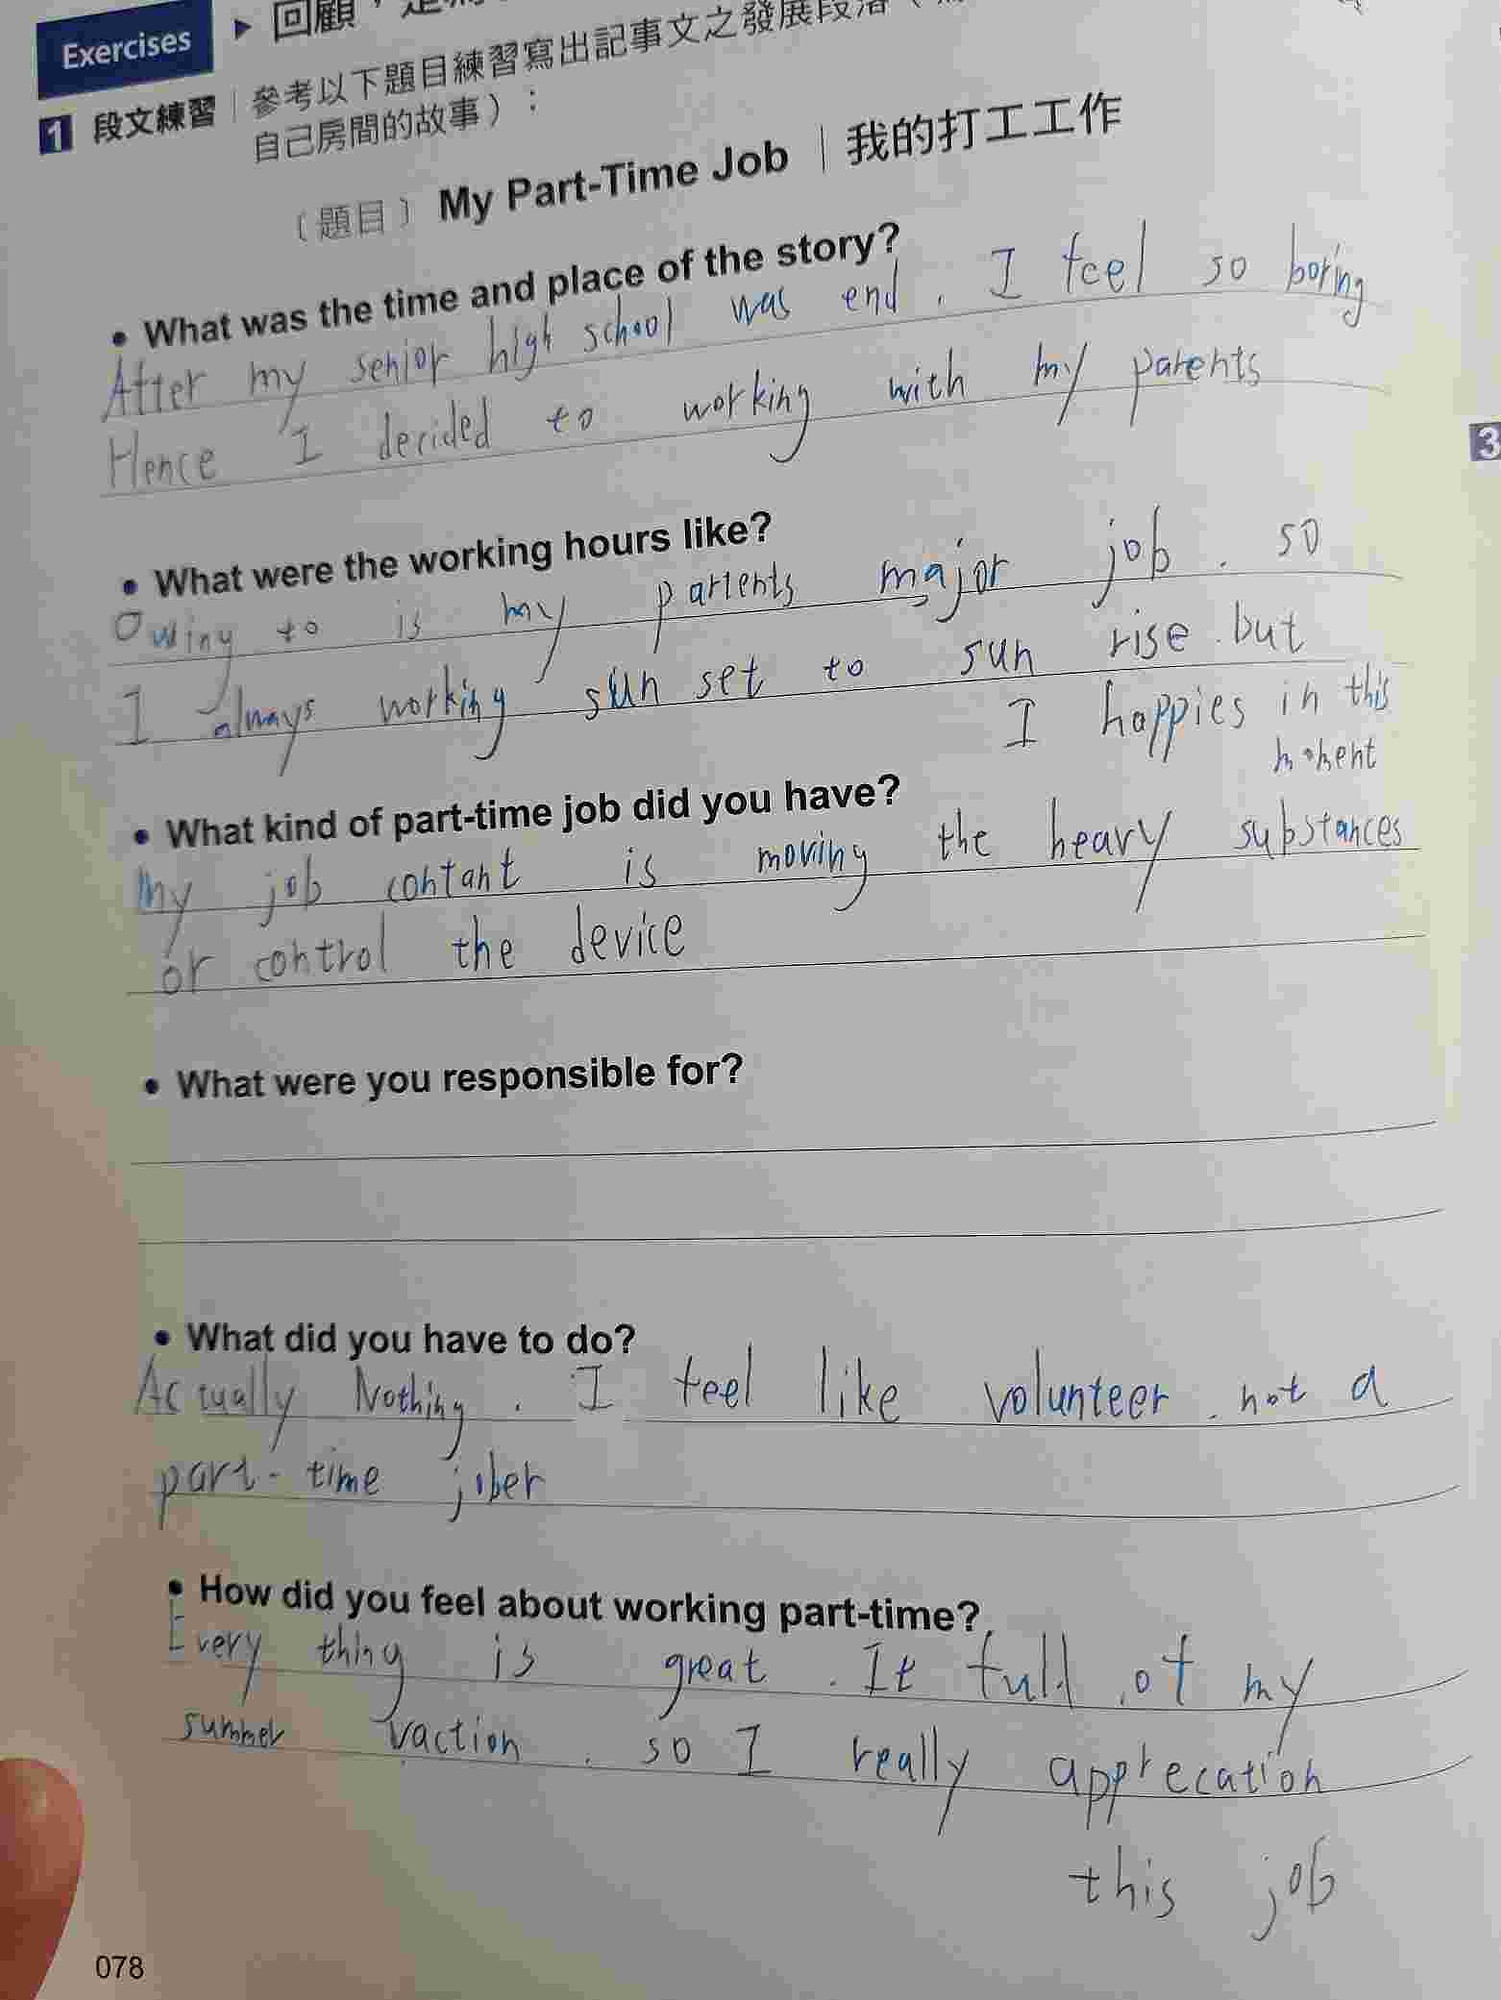 Exercises ▶ 回顧，
1 段文練習｜參考以下題目練習寫出記事文之發展段落（
自己房間的故事）：
〔題目〕My Part-Time Job｜我的打工工作
• What was the time and place of the story?
After my senior high school was end. I feel so boring
Hence I decided to working with my parents
3
• What were the working hours like?
Owing to is my partents major job. so
I always working sun set to sun rise. but
I happies in this
moment
• What kind of part-time job did you have?
My job contant is moving the heavy substances
or control the device
• What were you responsible for?
• What did you have to do?
Actually Nothing. I feel like volunteer. not a
part-time jober
• How did you feel about working part-time?
Every thing is great. It full of my
summer vaction. so I really apprecation
this job
078